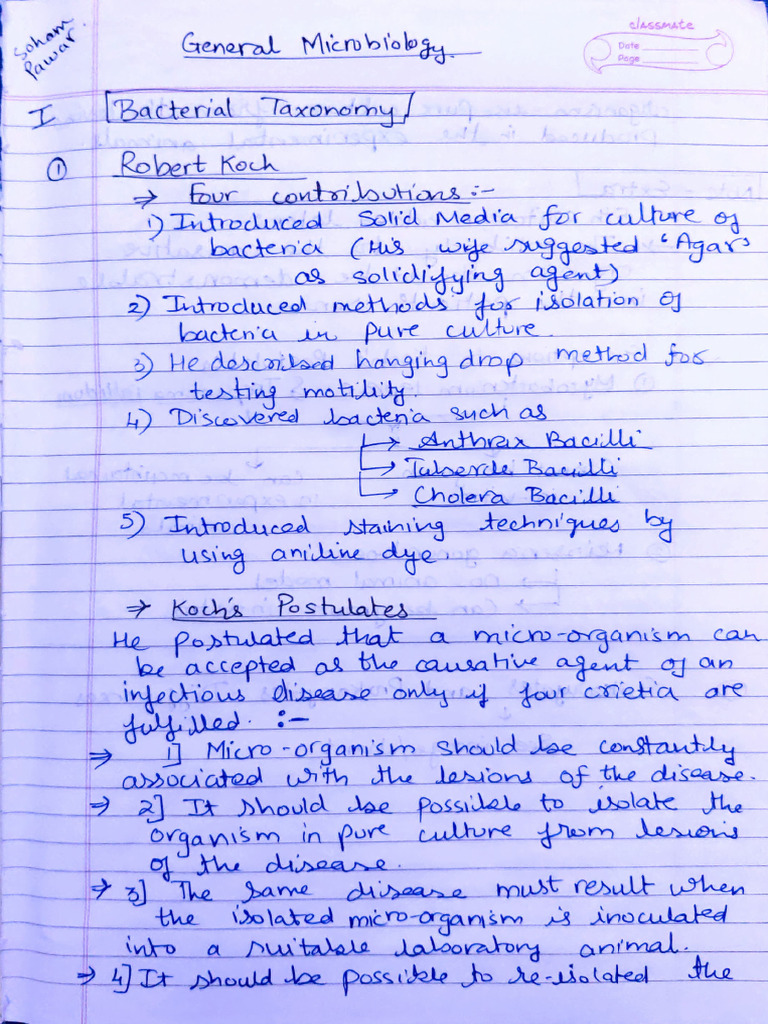 Soham
Pawar.
General Microbiology.
classmate
Date
Page
I Bacterial Taxonomy
① Robert Koch
⇒ Four contributions :-
1) Introduced Solid Media for culture of
bacteria (His wife suggested 'Agar'
as solidifying agent)
2) Introduced methods for isolation of
bacteria in pure culture.
3) He described hanging drop method for
testing motility.
4) Discovered bacteria such as
→ Anthrax Bacilli
→ Tubercle Bacilli
→ Cholera Bacilli
5) Introduced staining techniques by
using aniline dye
⇒ Koch's Postulates
He postulated that a micro-organism can
be accepted as the causative agent of an
infectious disease only if four crietia are
fulfilled. :-
⇒ 1] Micro-organism should be constantly
associated with the lesions of the disease.
⇒ 2] It should be possible to isolate the
organism in pure culture from lesions
of the disease.
⇒ 3] The same disease must result when
the isolated micro-organism is inoculated
into a suitable laboratory animal.
⇒ 4] It should be possible to re-isolated the